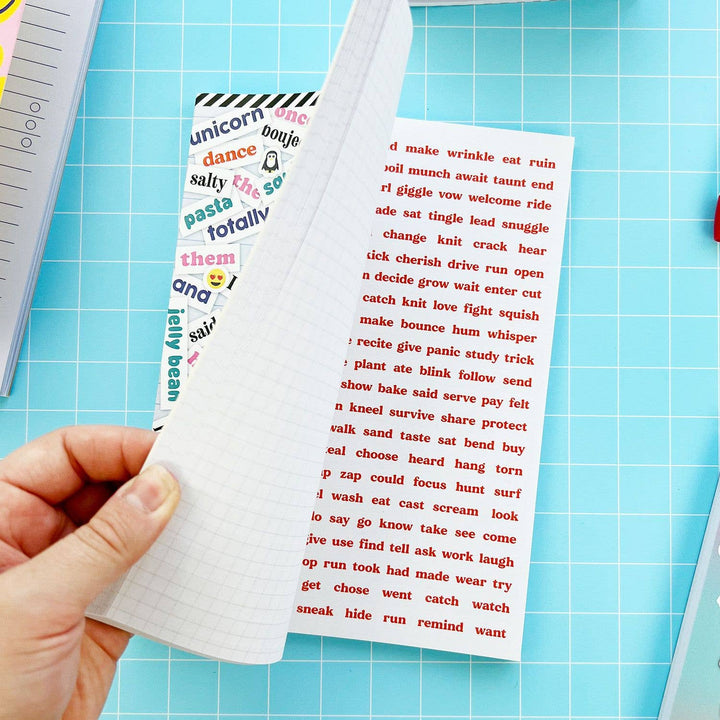 unicorn once
boujee
dance
salty the
pasta
totally
them
ana
said
jelly bean
make wrinkle eat ruin
munch await taunt end
giggle vow welcome ride
sat tingle lead snuggle
change knit crack hear
kick cherish drive run open
decide grow wait enter cut
catch knit love fight squish
make bounce hum whisper
recite give panic study trick
plant ate blink follow send
show bake said serve pay felt
kneel survive share protect
walk sand taste sat bend buy
eal choose heard hang torn
zap could focus hunt surf
wash eat cast scream look
do say go know take see come
give use find tell ask work laugh
op run took had made wear try
get chose went catch watch
sneak hide run remind want